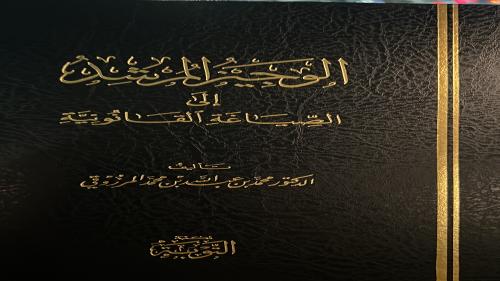 الوجيز المرشد
إلى
الصياغة القانونية
تأليف
الدكتور محمد بن عبد الله بن محمد المرزوقي
التوبة